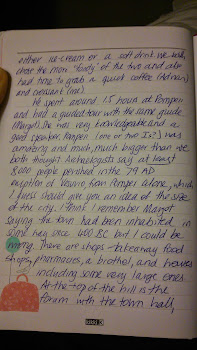 either ice-cream or a soft drink. We both
chose the more "foody" of the two and also
had time to grab a quiet coffee (Adrian)
and croissant (me).
We spent around 1.5 hours at Pompeii
and had a guided tour with the same guide
Margot. She was very knowledgeable and a
good speaker. Pompeii (one or two Is?) was
amazing and much, much bigger than we
both thought. Archeologists say at least
8,000 people perished in the 79 AD
eruption of Vesuvio from Pompeii alone, which
I guess should give you an idea of the size
of the city. I think I remember Margot
saying the town had been inhabited in
some way since 400 BC but I could be
wrong. There are shops - takeaway food
shops, pharmacies, a brothel, and houses
including some very large ones.
At the top of the hill is the
forum with the town hall,